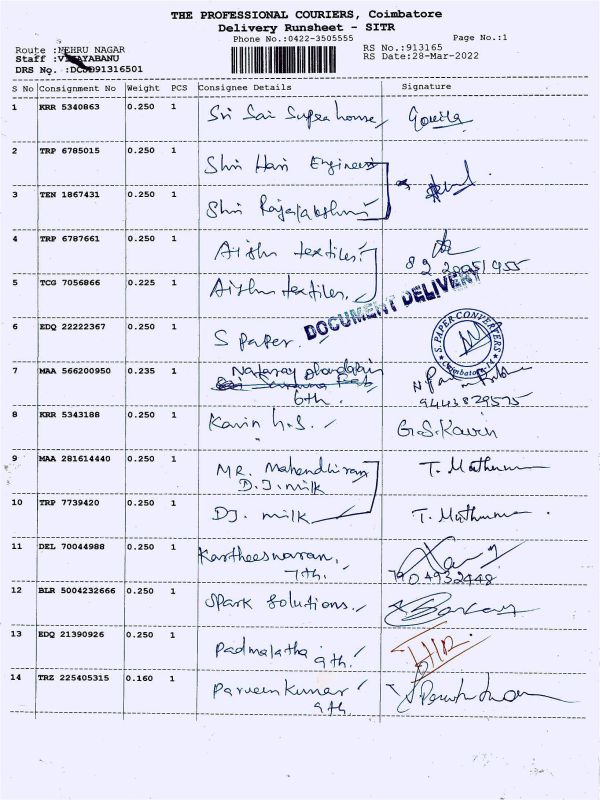 THE PROFESSIONAL COURIERS, Coimbatore
Delivery Runsheet - SITR
Phone No.:0422-3505555 Page No.:1
Route :NEHRU NAGAR RS No.:913165
Staff :VIJAYABANU RS Date:28-Mar-2022
DRS No. :
S No Consignment No Weight PCS Consignee Details Signature
1 KRR 5340863 0.250 1 Sri Sai Supea house
2 TRP 6785015 0.250 1 Shri Hari Engineers
3 TEN 1867431 0.250 1 Shri Rajalakshmi
4 TRP 6787661 0.250 1 Aishu textiles.
5 TCG 7056866 0.225 1 Aishu textiles.
DOCUMENT DELIVERY
6 EDQ 22222367 0.250 1 S paper. S. PAPER CONVERTERS Coimbatore-14
7 MAA 566200950 0.235 1 Nataraj
6th. 9443829575
8 KRR 5343188 0.250 1 Kavin h.S. G.S.Kavin
9 MAA 281614440 0.250 1 MR. Mahendhiran T. Muthuma
D.J. milk
10 TRP 7739420 0.250 1 DJ. milk T. Muthuma
11 DEL 70044988 0.250 1 Kartheeswaran.
7th. 7904932448
12 BLR 5004232666 0.250 1 Spark Solutions.
13 EDQ 21390926 0.250 1 Padmalatha
9th.
14 TRZ 225405315 0.160 1 Parveen Kumar
9th